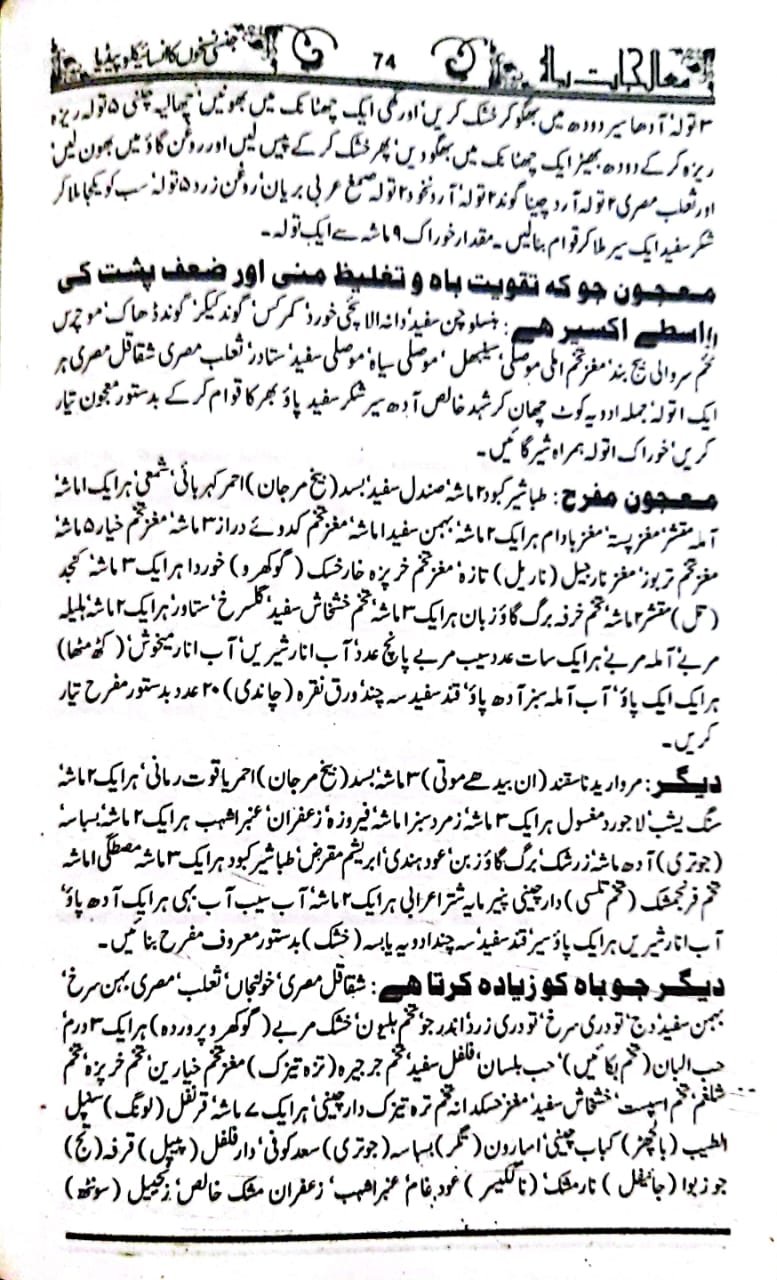 معالجات باہ 74 جنسی نسخوں کا انسائیکلوپیڈیا
۳ تولہ' آدھا سیر دودھ میں بھگو کر خشک کریں' اور گھی ایک چھٹانک میں بھونیں' چھالیہ چکنی ۵ تولہ ریزہ
ریزہ کر کے دودھ بھیڑ ایک چھٹانک میں بھگو دیں' پھر خشک کر کے پیس لیں اور روغن گاؤ میں بھون لیں'
اور ثعلب مصری ۲ تولہ' آرد چینا گوند ۲ تولہ' آرد نخود ۲ تولہ' صمغ عربی بریان' روغن زرد ۵ تولہ' سب کو یکجا ملا کر
شکر سفید ایک سیر ملا کر قوام بنالیں۔ مقدار خوراک ۹ ماشہ سے ایک تولہ۔
معجون جو کہ تقویت باہ و تغلیظ منی اور ضعف پشت کی
واسطے اکسیر ہے: بنسلوچن سفید' دانہ الائچی خورد' کمرکس' گوند کیکر' گوند ڈھاک' موچرس
تخم سروالی' بیج بند' مغز تخم املی' موصلی سینبھل' موصلی سیاہ' موصلی سفید' ستاور' ثعلب مصری' شقاقل مصری ہر
ایک ا تولہ' جملہ ادویہ کوٹ چھان کر شہد خالص آدھ سیر' شکر سفید پاؤ بھر کا قوام کر کے بدستور معجون تیار
کریں' خوراک ا تولہ ہمراہ شیر گائیں۔
معجون مفرح: طباشیر کبود ۲ ماشہ' صندل سفید' بسد (بیخ مرجان) احمر' کہربائی' شمعی' ہر ایک ا ماشہ
آملہ مقشر' مغز پستہ' مغز بادام ہر ایک ۲ ماشہ' بہمن سفید ا ماشہ' مغز تخم کدوئے دراز ۳ ماشہ' مغز تخم خیار ۵ ماشہ
مغز تخم تربوز' مغز نارجیل (ناریل) تازہ' مغز تخم خرپزہ' خارخسک (گوکھرو) خوردا ہر ایک ۳ ماشہ' کنجد
(تل) مقشر ۲ ماشہ' تخم خرفہ' برگ گاؤزبان ہر ایک ۳ ماشہ' تخم خشخاش سفید' گلسرخ' ستاور' ہر ایک ۲ ماشہ' ہلیلہ
مربے' آملہ مربے' ہر ایک سات عدد' سیب مربے پانچ عدد' آب انار شیریں' آب انار میخوش' (کھٹ مٹھا)
ہر ایک ایک پاؤ' آب آملہ سبز آدھ پاؤ' قند سفید سہ چند' ورق نقرہ (چاندی) ۲۰ عدد بدستور مفرح تیار
کریں۔
دیگر: مروارید ناسفتہ (ان بیدھے موتی) ۳ ماشہ' بسد (بیخ مرجان) احمر' یاقوت رمانی' ہر ایک ۲ ماشہ
سنگ یشب' لاجورد مغسول ہر ایک ۳ ماشہ' زمرد سبز ا ماشہ' فیروزہ' زعفران' عنبر اشہب ہر ایک ۲ ماشہ' بسباسہ
(جوتری) آدھ ماشہ' زرشک' برگ گاؤزبن' عود ہندی' ابریشم مقرض' طباشیر کبود ہر ایک ۳ ماشہ' مصطگی ا ماشہ
تخم فرنجمشک (تخم تلسی) دارچینی' پنیر مایہ شتر اعرابی ہر ایک ۲ ماشہ' آب سیب' آب بہی ہر ایک آدھ پاؤ'
آب انار شیریں ہر ایک پاؤ سیر' قند سفید' سہ چند ادویہ یابسہ (خشک) بدستور معروف مفرح بنائیں۔
دیگر جو باہ کو زیادہ کرتا ہے: شقاقل مصری' خولنجاں' ثعلب' مصری' بہمن سرخ'
بہمن سفید' وج' تودری سرخ' تودری زرد' اندر جو' تخم ہلیون' خشک مربے (گوکھرو پروردہ) ہر ایک ۳ درم'
حب البان (تخم بکائیں)' حب بلسان' فلفل سفید' تخم جرجیرہ (ترہ تیزک) مغز تخم خیارین' تخم خرپزہ' تخم
شلغم' تخم اسپست' خشخاش سفید' مغز حسکدانہ' تخم ترہ تیزک' دارچینی' ہر ایک ۷ ماشہ' قرنفل (لونگ) سنبل
الطیب (بالچھڑ) کباب چینی' اسارون (تگر) بسباسہ (جوتری) سعد کوفی' دار فلفل (پیپل) قرفہ (تج)
جوز بوا (جائیفل) نارمشک' (ناگکیسر) عود غام' عنبر اشہب' زعفران' مشک خالص' زنجبیل (سونٹھ)